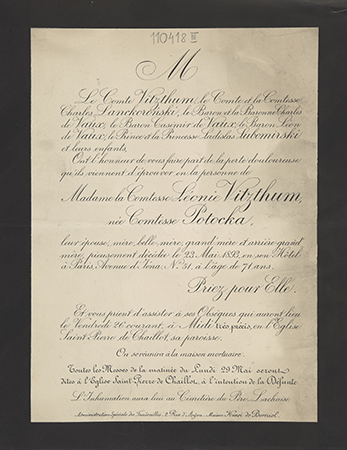 110418 III
M
Le Comte Vitzthum, le Comte et la Comtesse
Charles Lanckoroński, le Baron et la Baronne Charles
de Vaux, le Baron Casimir de Vaux, le Baron Léon
de Vaux, le Prince et la Princesse Ladislas Lubomirski
et leurs enfants,
Ont l'honneur de vous faire part de la perte douloureuse
qu'ils viennent d'éprouver en la personne de
Madame la Comtesse Léonie Vitzthum,
née Comtesse Potocka,
leur épouse, mère, belle-mère, grand'mère et arrière-grand'
mère, pieusement décédée le 23 Mai 1893, en son Hôtel
à Paris, Avenue d'Iéna, No. 31, à l'âge de 71 ans.
Priez pour Elle!
Et vous prient d'assister à ses Obsèques qui auront lieu
le Vendredi 26 courant, à Midi très précis, en l'Eglise
Saint-Pierre de Chaillot, sa paroisse.
On se réunira à la maison mortuaire.
Toutes les Messes de la matinée du Lundi 29 Mai seront
dites à l'Eglise Saint-Pierre de Chaillot, à l'intention de la Défunte.
L'Inhumation aura lieu au Cimetière du Père-Lachaise.
Administration Spéciale des Funérailles, 2 Rue d'Anjou, Maison Henri de Borniol.